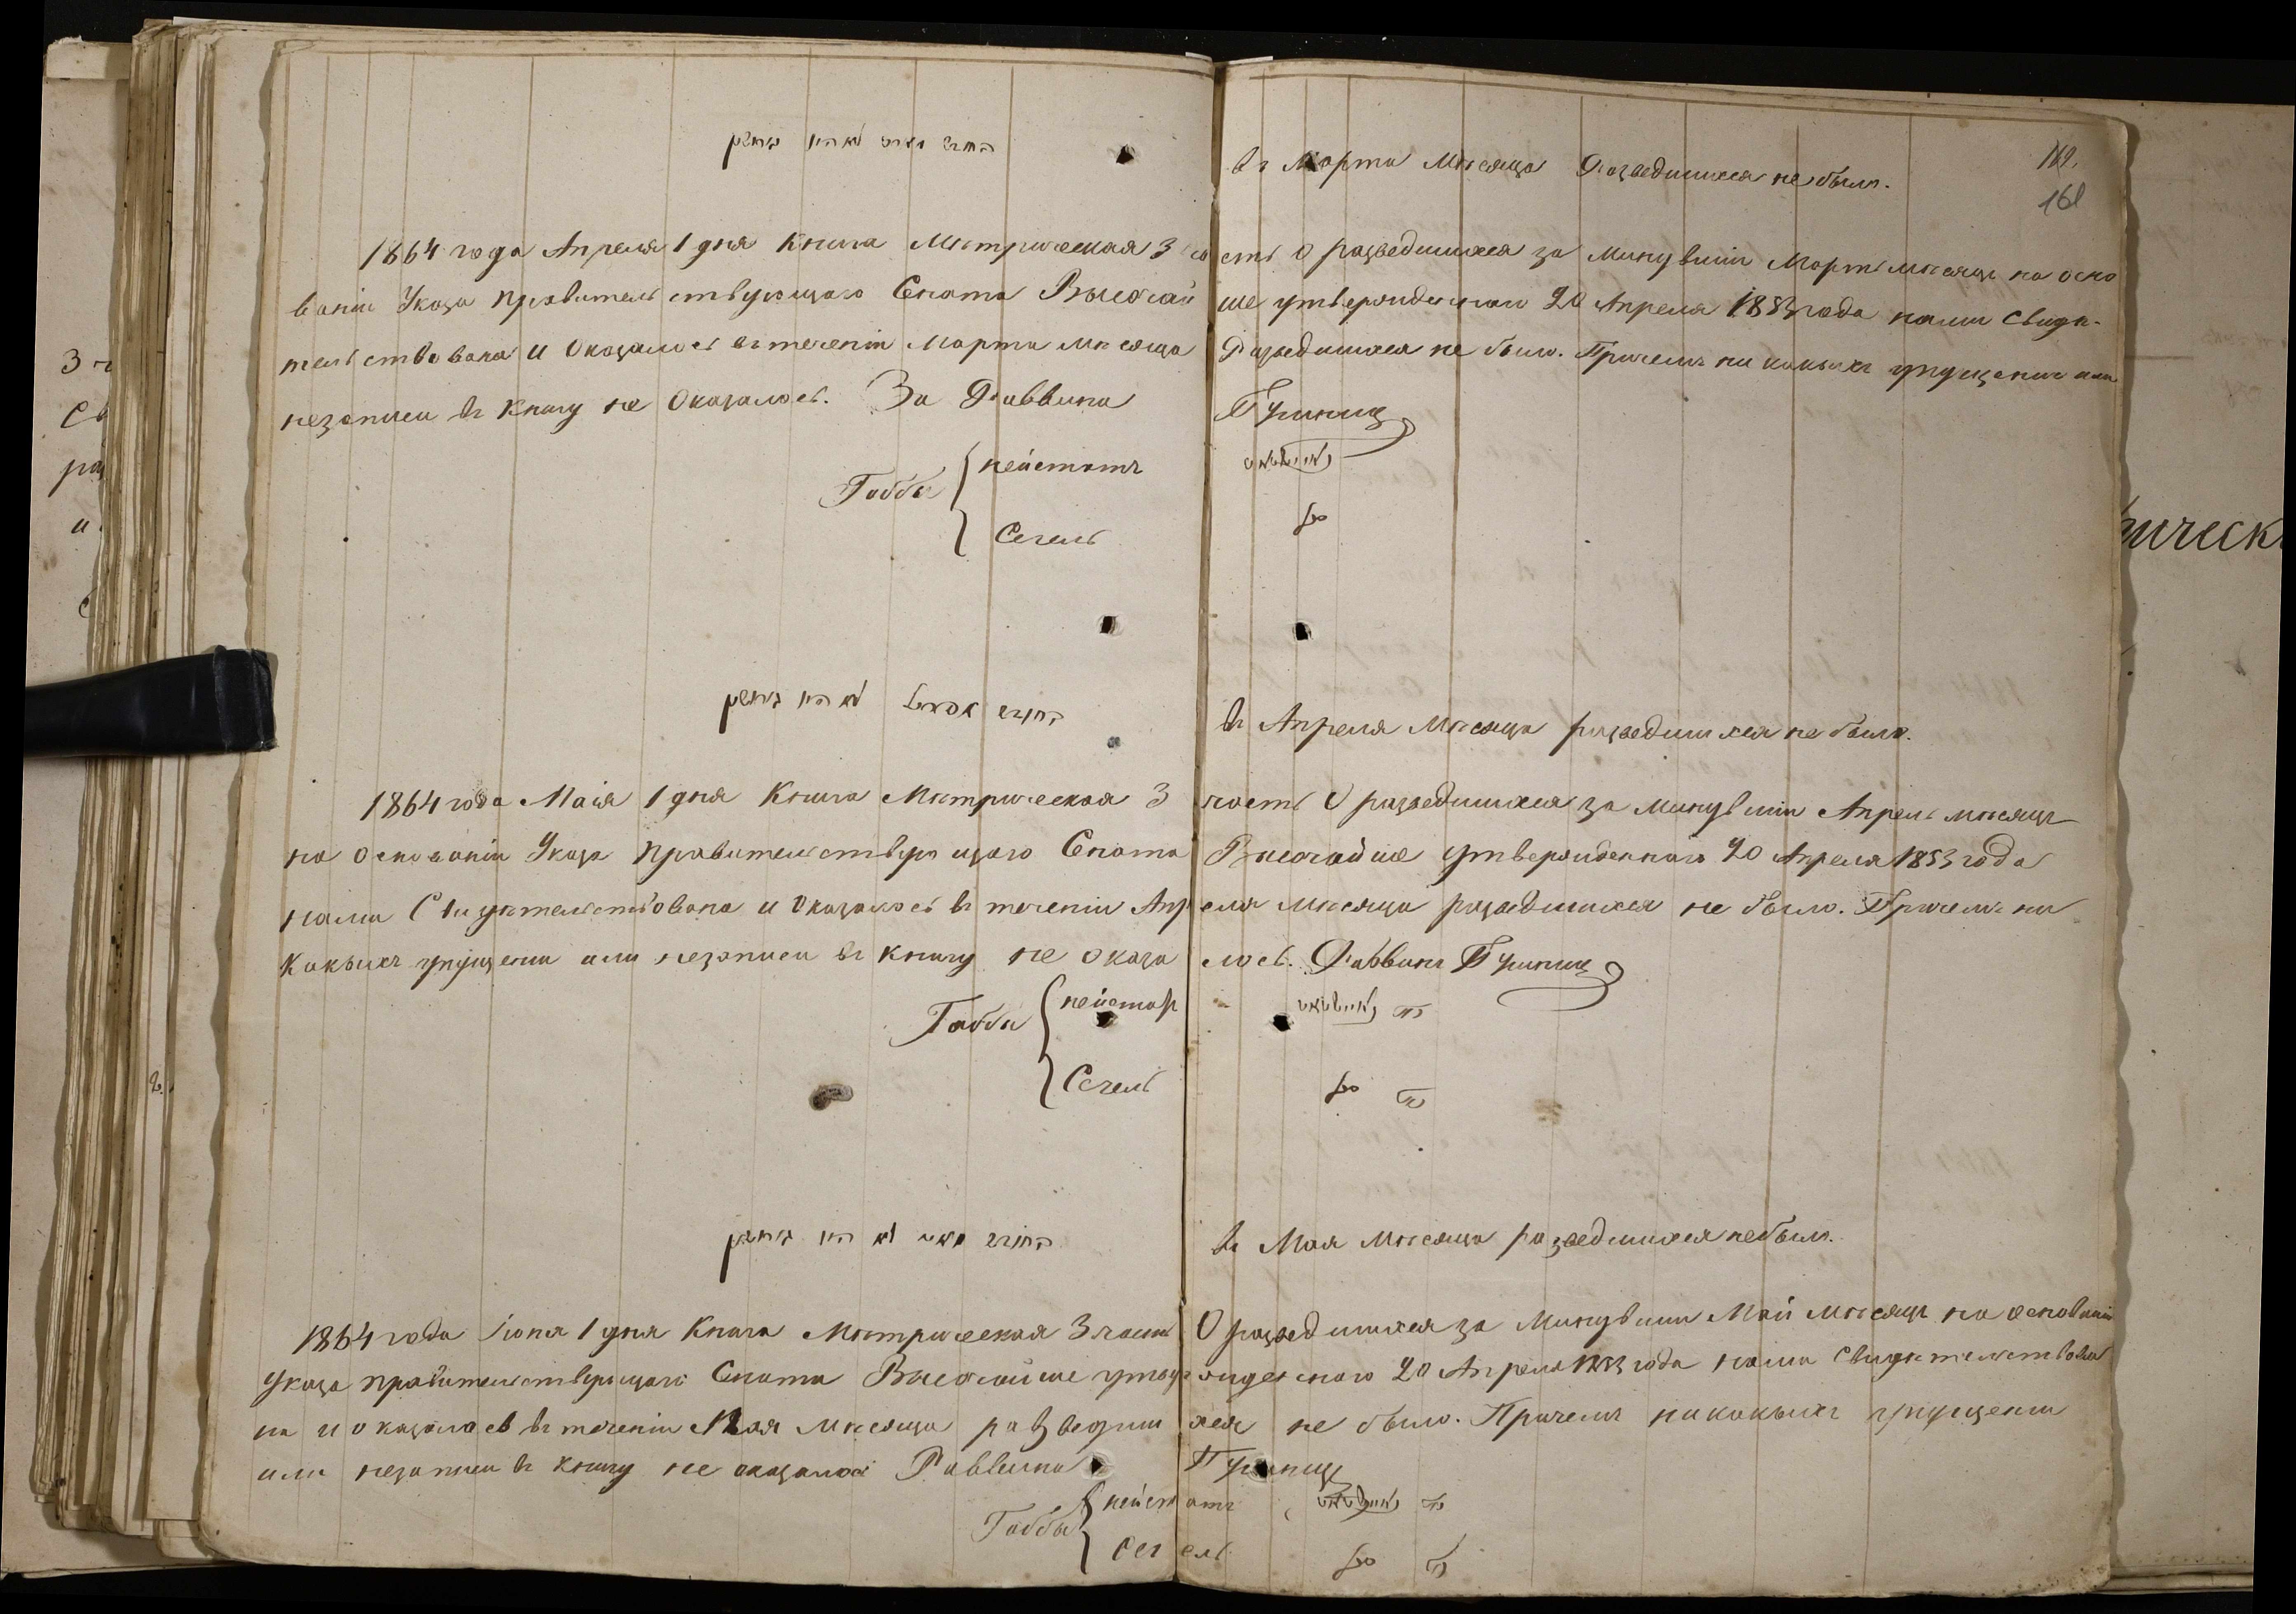 חודש מארט לא היה גרושין
въ Марта мѣсяца Разведшихся не было.
162.
161
1864 года Апреля 1 дня Книга Мѣтрическая 3 часть О разведшихся за минувшій Мартъ мѣсяцъ на осно
ваніи Указа Правительствующаго Сената Высочайше утвержденнаго 20 Апреля 1853 года нами Свидѣ-
тельствована и Оказалось въ теченіи Марта мѣсяца Разведшихся не было. Причемъ ни какихъ упущеній или
незаписи въ Книгу не Оказалось. За Раввина
Габбы
Нейштатъ
Сегель
סגל
въ Апреля Мѣсяца разведшихся не было.
1864 года Маія 1 дня Книга Мѣтрическая 3 часть О разведшихся за минувшій Апрель мѣсяцъ
на Основаніи Указа Правительствующаго Сената Высочайше утвержденнаго 20 Апреля 1853 года
нами Свидѣтельствована и Оказалось въ теченіи Апреля мѣсяца разведшихся не было. Причемъ ни
какихъ упущеній или незаписи въ книгу не оказалось. Раввинъ
Габбы
Сегель
סגל
въ Мая мѣсяца разведшихся не было.
1864 года Іюня 1 дня Книга Мѣтрическая 3 часть О разведшихся за Минувшій Май мѣсяцъ на основаніи
Указа Правительствующаго Сената Высочайше утвержденнаго 20 Апреля 1853 года нами Свидѣтельствова
на и оказалось въ теченіи Мая Мѣсяца разведшихся не было. Причемъ никакихъ упущеній
или незаписи въ книгу не оказалось Раввина
Габбы
Нейштатъ
Сегель
סגל
3
ическ